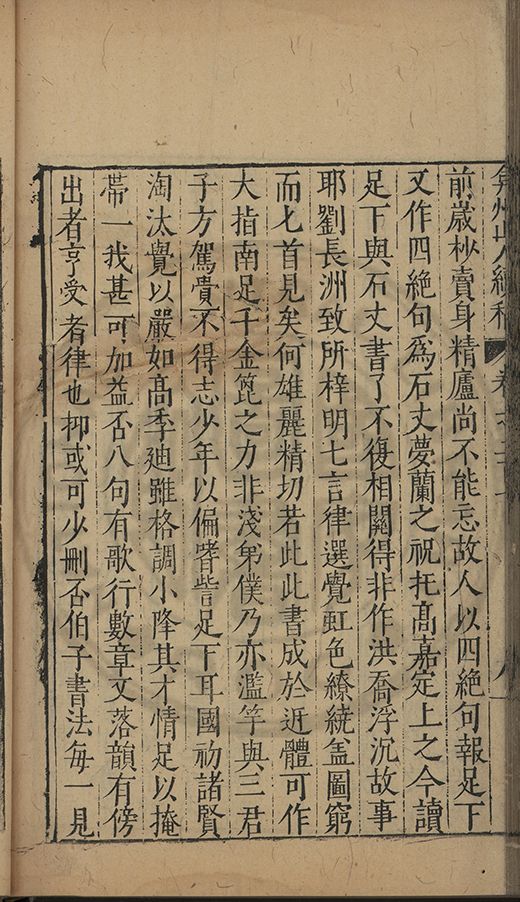 弇州山人續稿
前歲杪賣身精廬尚不能忘故人以四絕句報足下
又作四絕句爲石丈夢蘭之祝托髙嘉定上之今讀
足下與石丈書了不復相關得非作洪喬浮沉故事
耶劉長洲致所梓明七言律選覺虹色繚統盖圖窮
而匕首見矣何雄麗精切若此此書成於近體可作
大指南足千金箆之力非淺第僕乃亦濫竽與三君
子方駕貴不得志少年以偏訾足下耳國初諸賢
淘汰覺以嚴如髙季廸雖格調小降其才情足以掩
帶一我甚可加益否八句有歌行數章文落韻有傍
出者亨受者律也抑或可少刪否伯子書法每一見